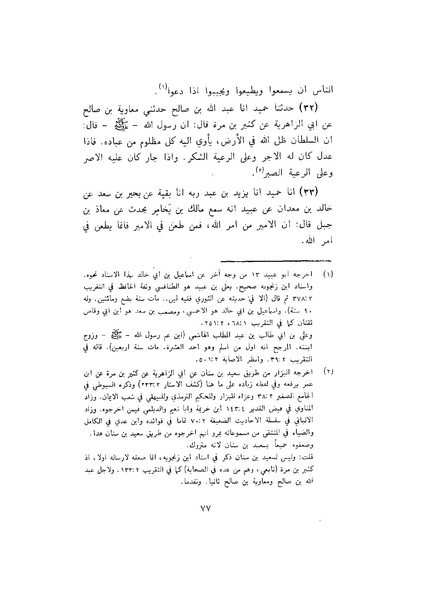 الناس ان يسمعوا ويطيعوا ويجيبوا اذا دعوا(١).
(٣٢) حدثنا حميد انا عبد الله بن صالح حدثني معاوية بن صالح
عن ابي الزاهرية عن كثير بن مرة قال: ان رسول الله - ﷺ - قال:
ان السلطان ظل الله في الأرض، يأوي اليه كل مظلوم من عباده. فاذا
عدل كان له الاجر وعلى الرعية الشكر. واذا جار كان عليه الاصر
وعلى الرعية الصبر(٢).
(٣٣) انا حميد انا يزيد بن عبد ربه انا بقية عن بحير بن سعد عن
خالد بن معدان عن عبيد انه سمع مالك بن يَخامِر يحدث عن معاذ بن
جبل قال: ان الامير من امر الله، فمن طعن في الامير فانما يطعن في
امر الله.
(١) اخرجه ابو عبيد ١٣ من وجه آخر عن اسماعيل بن ابي خالد بهذا الاسناد نحوه.
واسناد ابن زنجويه صحيح. يعلى بن عبيد هو الطنافسي وثقة الحافظ في التقريب
٣٧٨:٢ ثم قال (الا في حديثه عن الثوري ففيه لين.. مات سنة بضع ومائتين. وله
٩٠ سنة). واسماعيل بن ابي خالد هو الاحمسي، ومصعب بن سعد هو ابن ابي وقاص
ثقتان كما في التقريب ٦٨:١، ٢٥١:٢.
وعلي بن ابي طالب بن عبد المطلب الهاشمي (ابن عم رسول الله - ﷺ - وزوج
ابنته. المرجح انه اول من اسلم وهو احد العشرة. مات سنة اربعين). قاله في
التقريب ٣٩:٢. وانظر الاصابة ٥٠١:٢.
(٢) اخرجه البزار من طريق سعيد بن سنان عن ابي الزاهرية عن كثير بن مرة عن ابن
عمر يرفعه وفي لفظه زيادة على ما هنا (كشف الاستار ٢٣٣:٢) وذكره السيوطي في
الجامع الصغير ٣٨:٢ وعزاه للبزار والحكيم الترمذي والبيهقي في شعب الايمان. وزاد
المناوي في فيض القدير ١٤٣:٤ ابن خزيمة وابا نعيم والديلمي فيمن اخرجوه. وزاد
الالباني في سلسلة الاحاديث الضعيفة ٧٠:٢ تماما في فوائده وابن عدي في الكامل
والضياء في المنتقى من مسموعاته بمرو انهم اخرجوه من طريق سعيد بن سنان هذا.
وضعفوه جميعاً بسعيد بن سنان لانه متروك.
قلت: وليس لسعيد بن سنان ذكر في اسناد ابن زنجويه، انما ضعفه لارساله اولا، اذ
كثير بن مرة (تابعي، وهم من عده في الصحابة) كما في التقريب ١٣٣:٢. ولاجل عبد
الله بن صالح ومعاوية بن صالح ثانيا. وتقدما.
٧٧